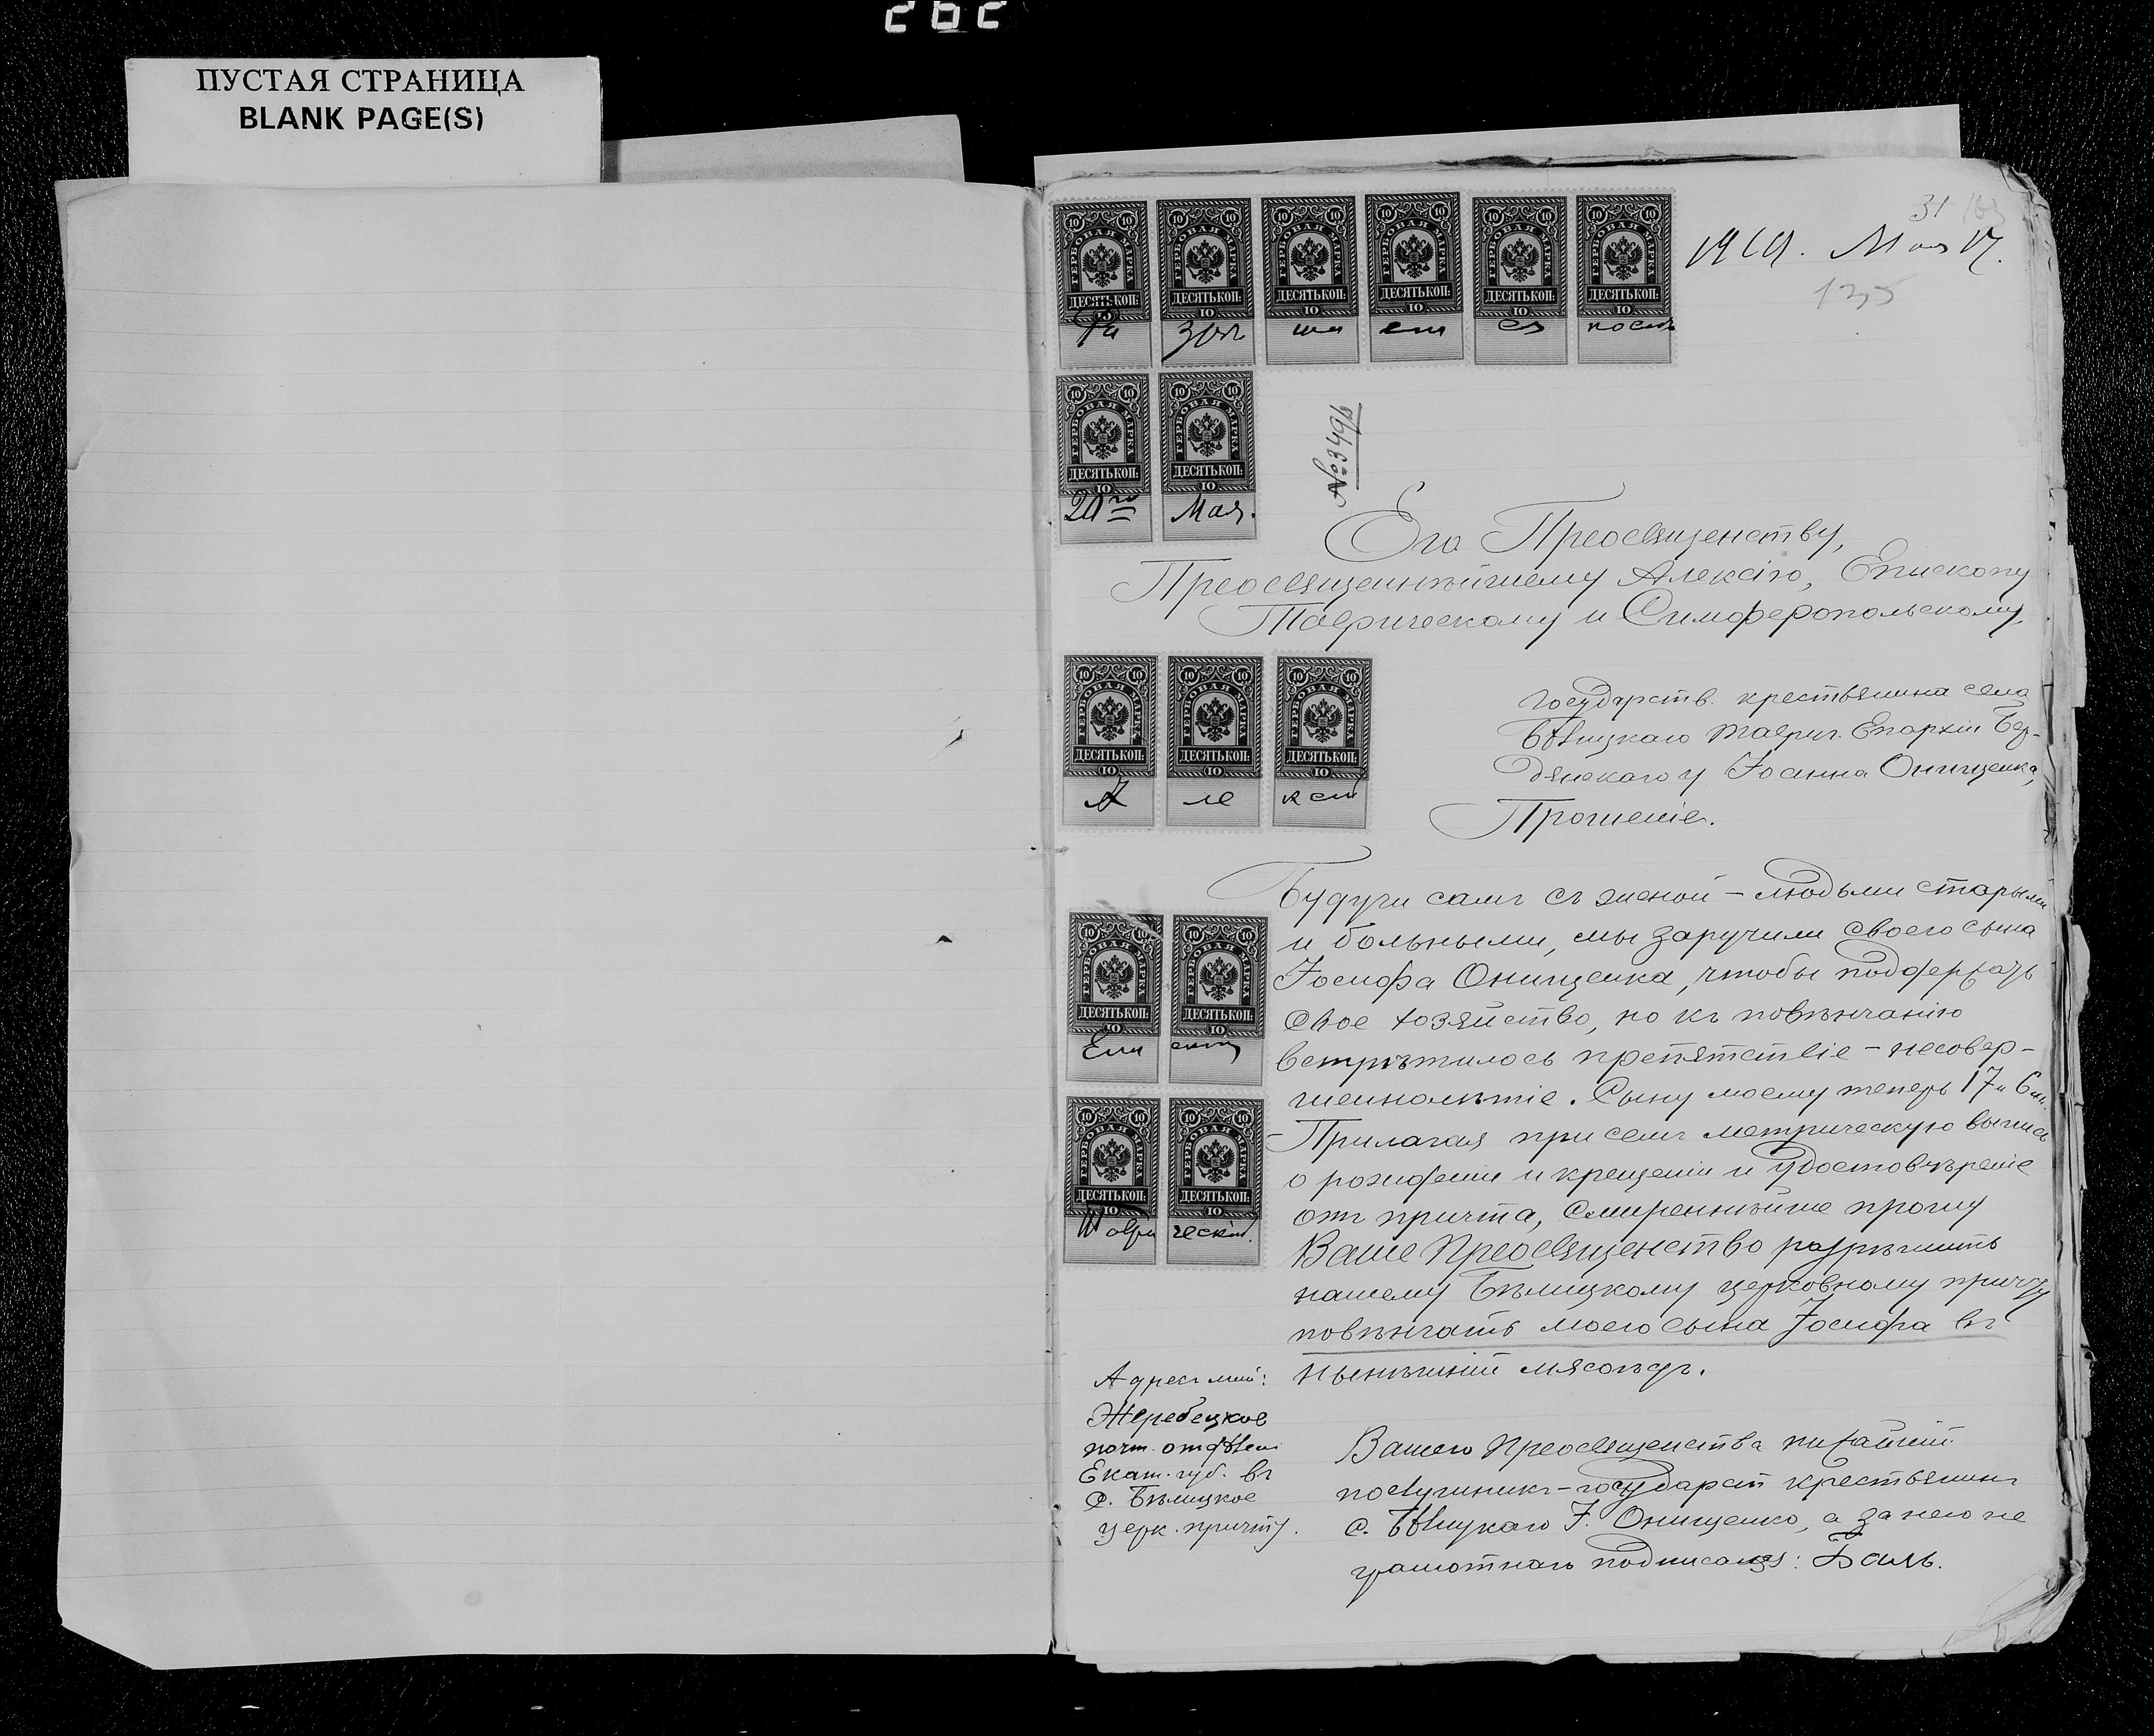 ПУСТАЯ СТРАНИЦА
BLANK PAGE(S)
31
135
Мая 17.
ГЕРБОВАЯ МАРКА ДЕСЯТЬ КОП: 10
ГЕРБОВАЯ МАРКА ДЕСЯТЬ КОП: 10
ГЕРБОВАЯ МАРКА ДЕСЯТЬ КОП: 10
ГЕРБОВАЯ МАРКА ДЕСЯТЬ КОП: 10
ГЕРБОВАЯ МАРКА ДЕСЯТЬ КОП: 10
ГЕРБОВАЯ МАРКА ДЕСЯТЬ КОП: 10
Ра зрѣ ша ет ся послѣ
ГЕРБОВАЯ МАРКА ДЕСЯТЬ КОП: 10
ГЕРБОВАЯ МАРКА ДЕСЯТЬ КОП: 10
20го Мая.
№ 3496
Его Преосвященству,
Преосвященнѣйшему Алексію, Епископу
Таврическому и Симферопольскому,
ГЕРБОВАЯ МАРКА ДЕСЯТЬ КОП: 10
ГЕРБОВАЯ МАРКА ДЕСЯТЬ КОП: 10
ГЕРБОВАЯ МАРКА ДЕСЯТЬ КОП: 10
А ле ксій
государств. крестьянина села
Бѣлицкаго Таврич. Епархіи Бер-
дянскаго у Іоанна Онищенка,
Прошеніе.
Будучи самъ съ женой – людьми старыми
и больными, мы заручили своего сына
Іосифа Онищенка, чтобы поддержать
свое хозяйство, но къ повѣнчанію
встрѣтилось препятствіе – несовер-
шеннолѣтіе. Сыну моему теперь 17 л. 6 м.
– Прилагая при семъ метрическую выпись
о рожденіи и крещеніи и удостовѣреніе
отъ причта, смиреннѣйше прошу
Ваше Преосвященство разрѣшить
нашему Бѣлицкому церковному причту
повѣнчать моего сына Іосифа въ
нынѣшній мясоѣдъ.
ГЕРБОВАЯ МАРКА ДЕСЯТЬ КОП: 10
ГЕРБОВАЯ МАРКА ДЕСЯТЬ КОП: 10
Епи скопъ
ГЕРБОВАЯ МАРКА ДЕСЯТЬ КОП: 10
ГЕРБОВАЯ МАРКА ДЕСЯТЬ КОП: 10
Таври ческій.
Адресъ мой:
Жеребецкое
почт. отдѣлен
Екат. губ. въ
с. Бѣлицкое
церк. причту.
Вашего Преосвященства нижайшій
послушникъ – государст крестьянинъ
с. Бѣлицкаго І. Онищенко, а за него не
грамотнаго подписался: